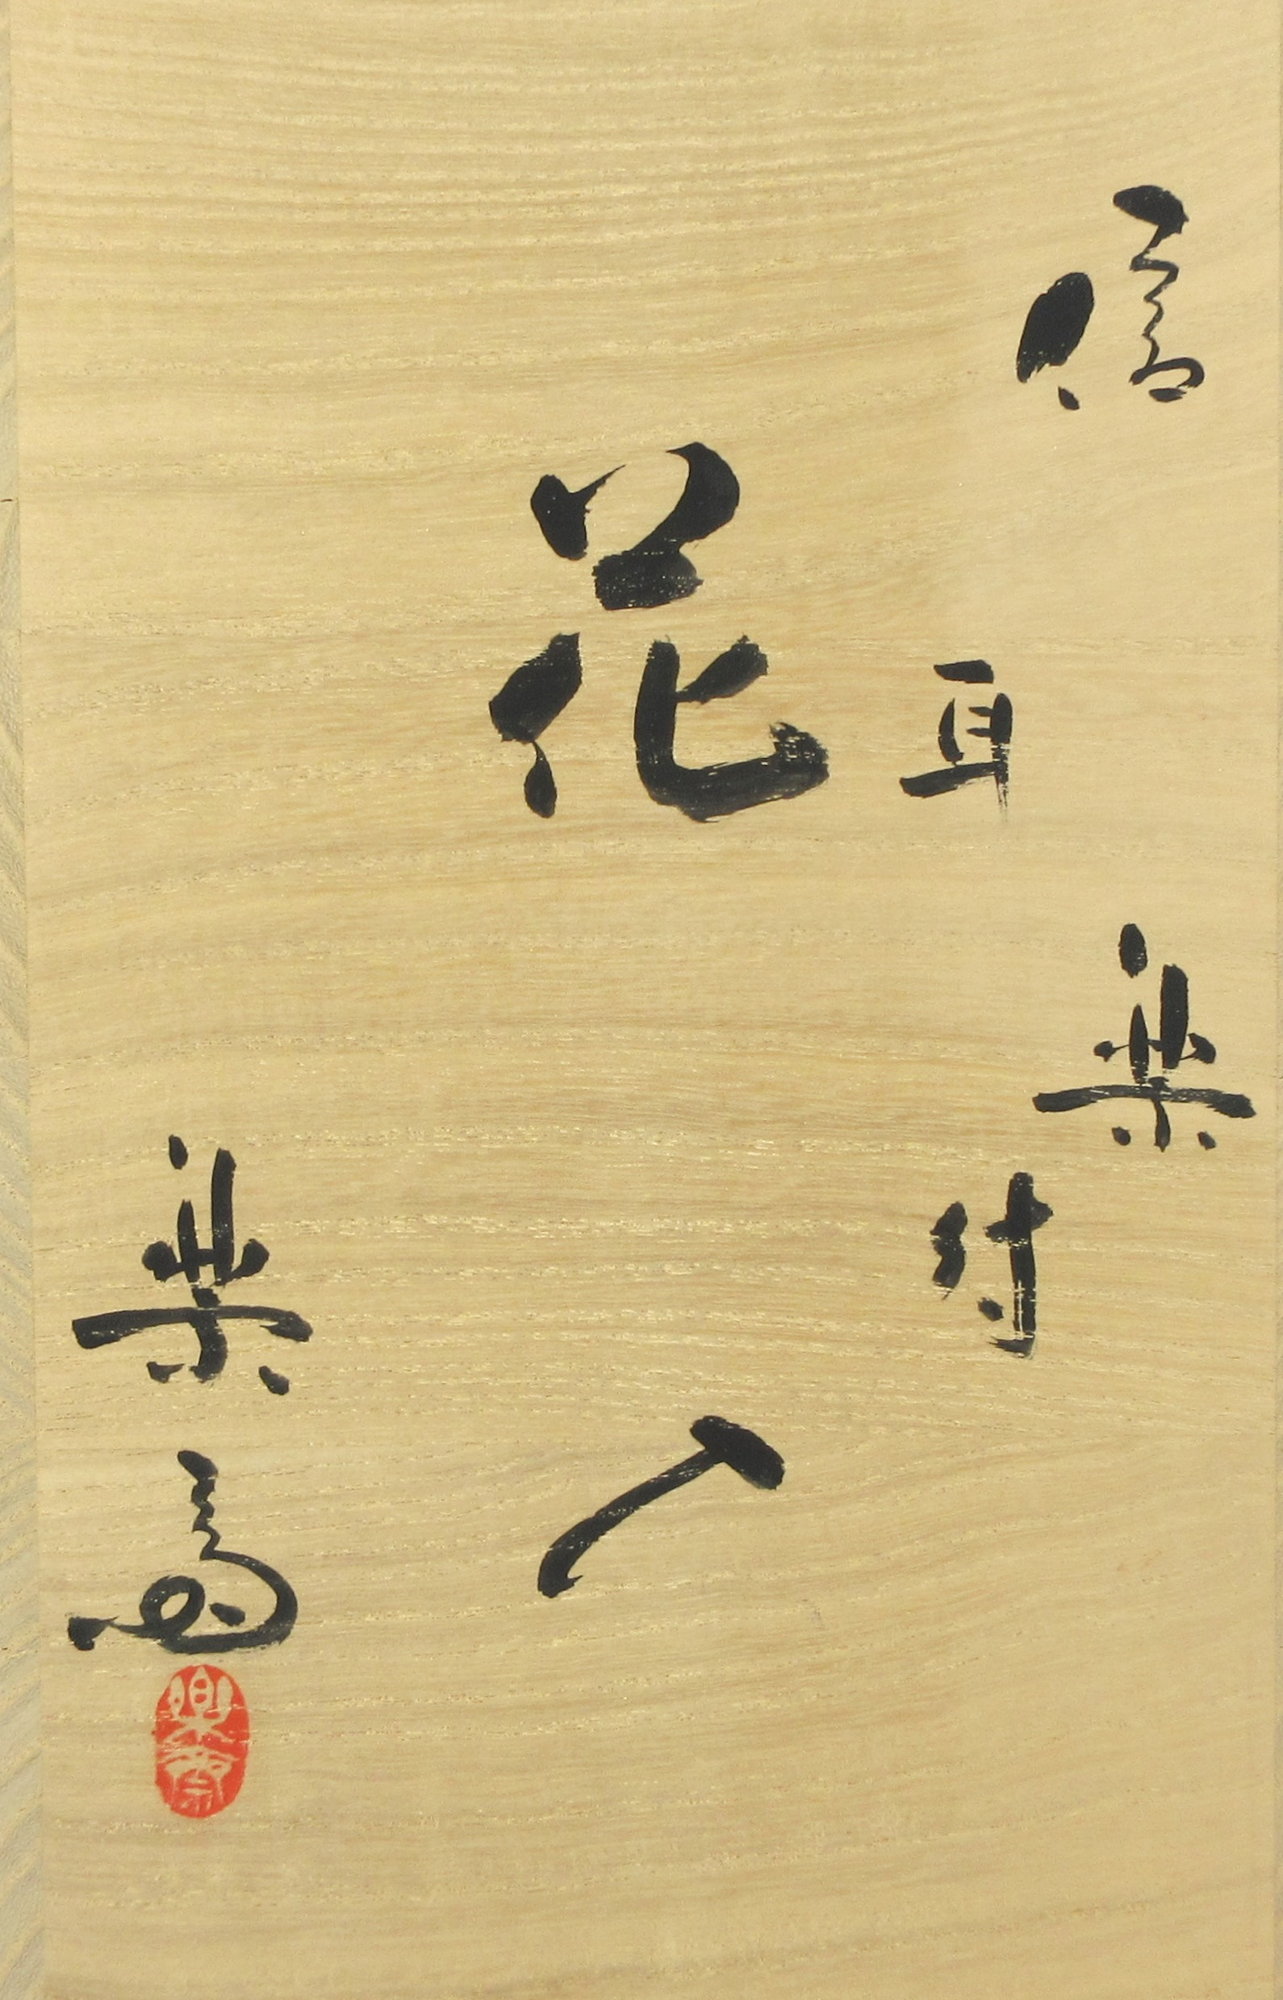 信楽
耳付
花入
楽斎